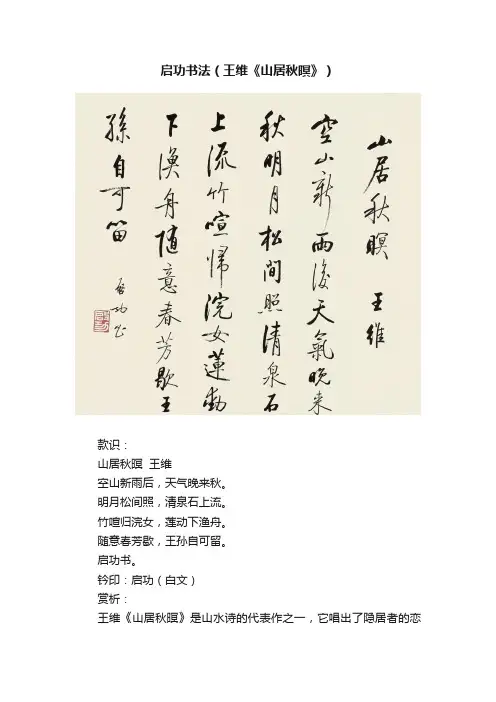 启功书法（王维《山居秋暝》）
山居秋暝 王維
空山新雨後天氣晚来
秋明月松間照清泉石
上流竹喧歸浣女蓮動
下漁舟随意春芳歇王
孫自可留 啓功書
款识：
山居秋暝 王维
空山新雨后，天气晚来秋。
明月松间照，清泉石上流。
竹喧归浣女，莲动下渔舟。
随意春芳歇，王孙自可留。
启功书。
钤印：启功（白文）
赏析：
王维《山居秋暝》是山水诗的代表作之一，它唱出了隐居者的恋